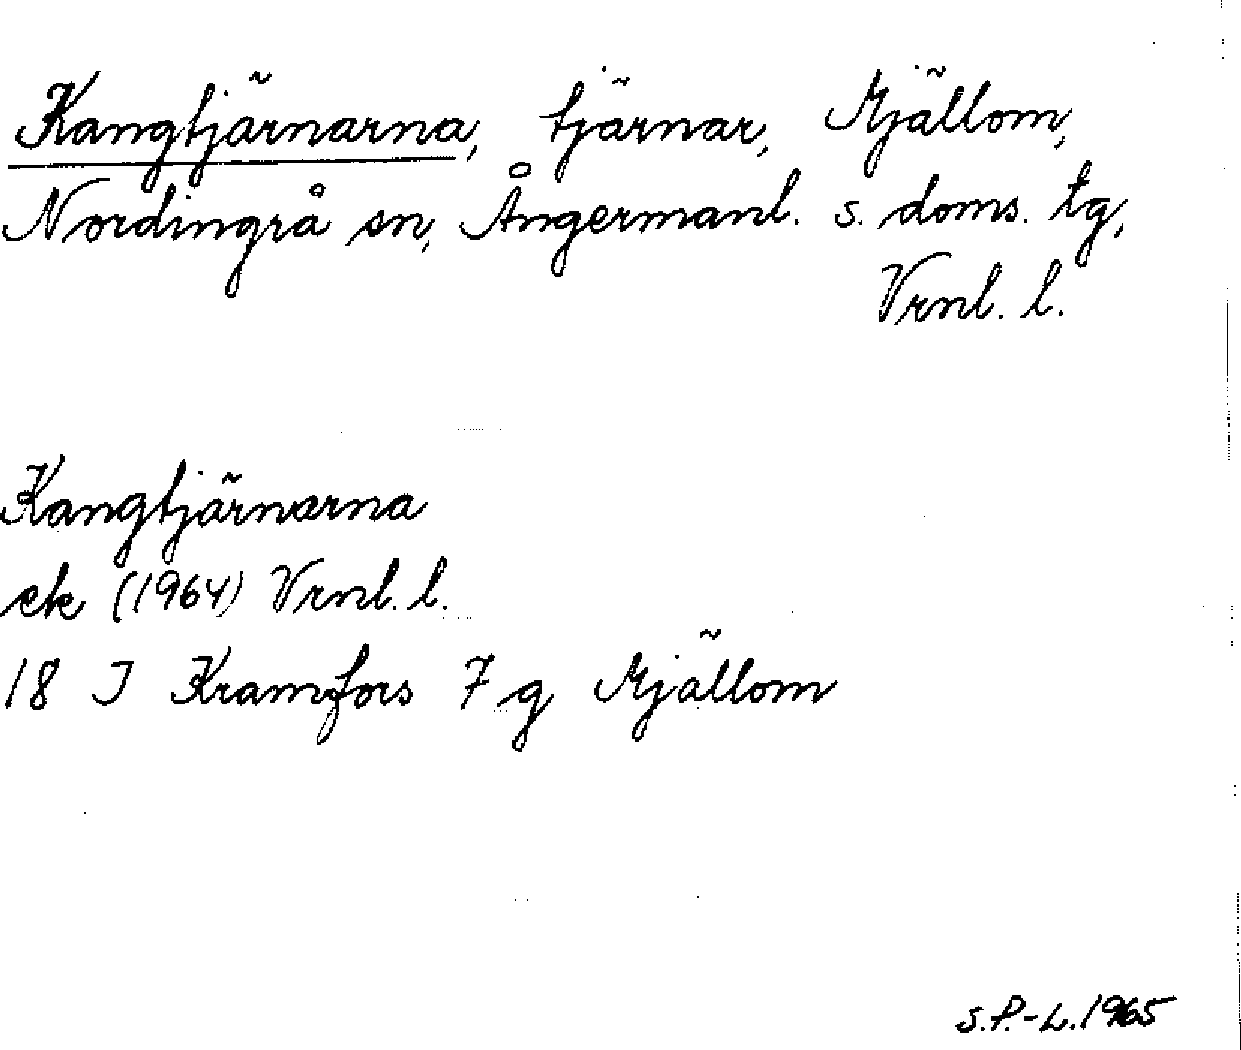 Kangtjärnarna, tjärnar, Mjällom,
Nordingrå sn, Ångermanl. s. doms. tg,
Vrnl. l.
Kangtjärnarna
ek (1964) Vrnl. l.
18 I Kramfors 7 g Mjällom
S.P.-L. 1965